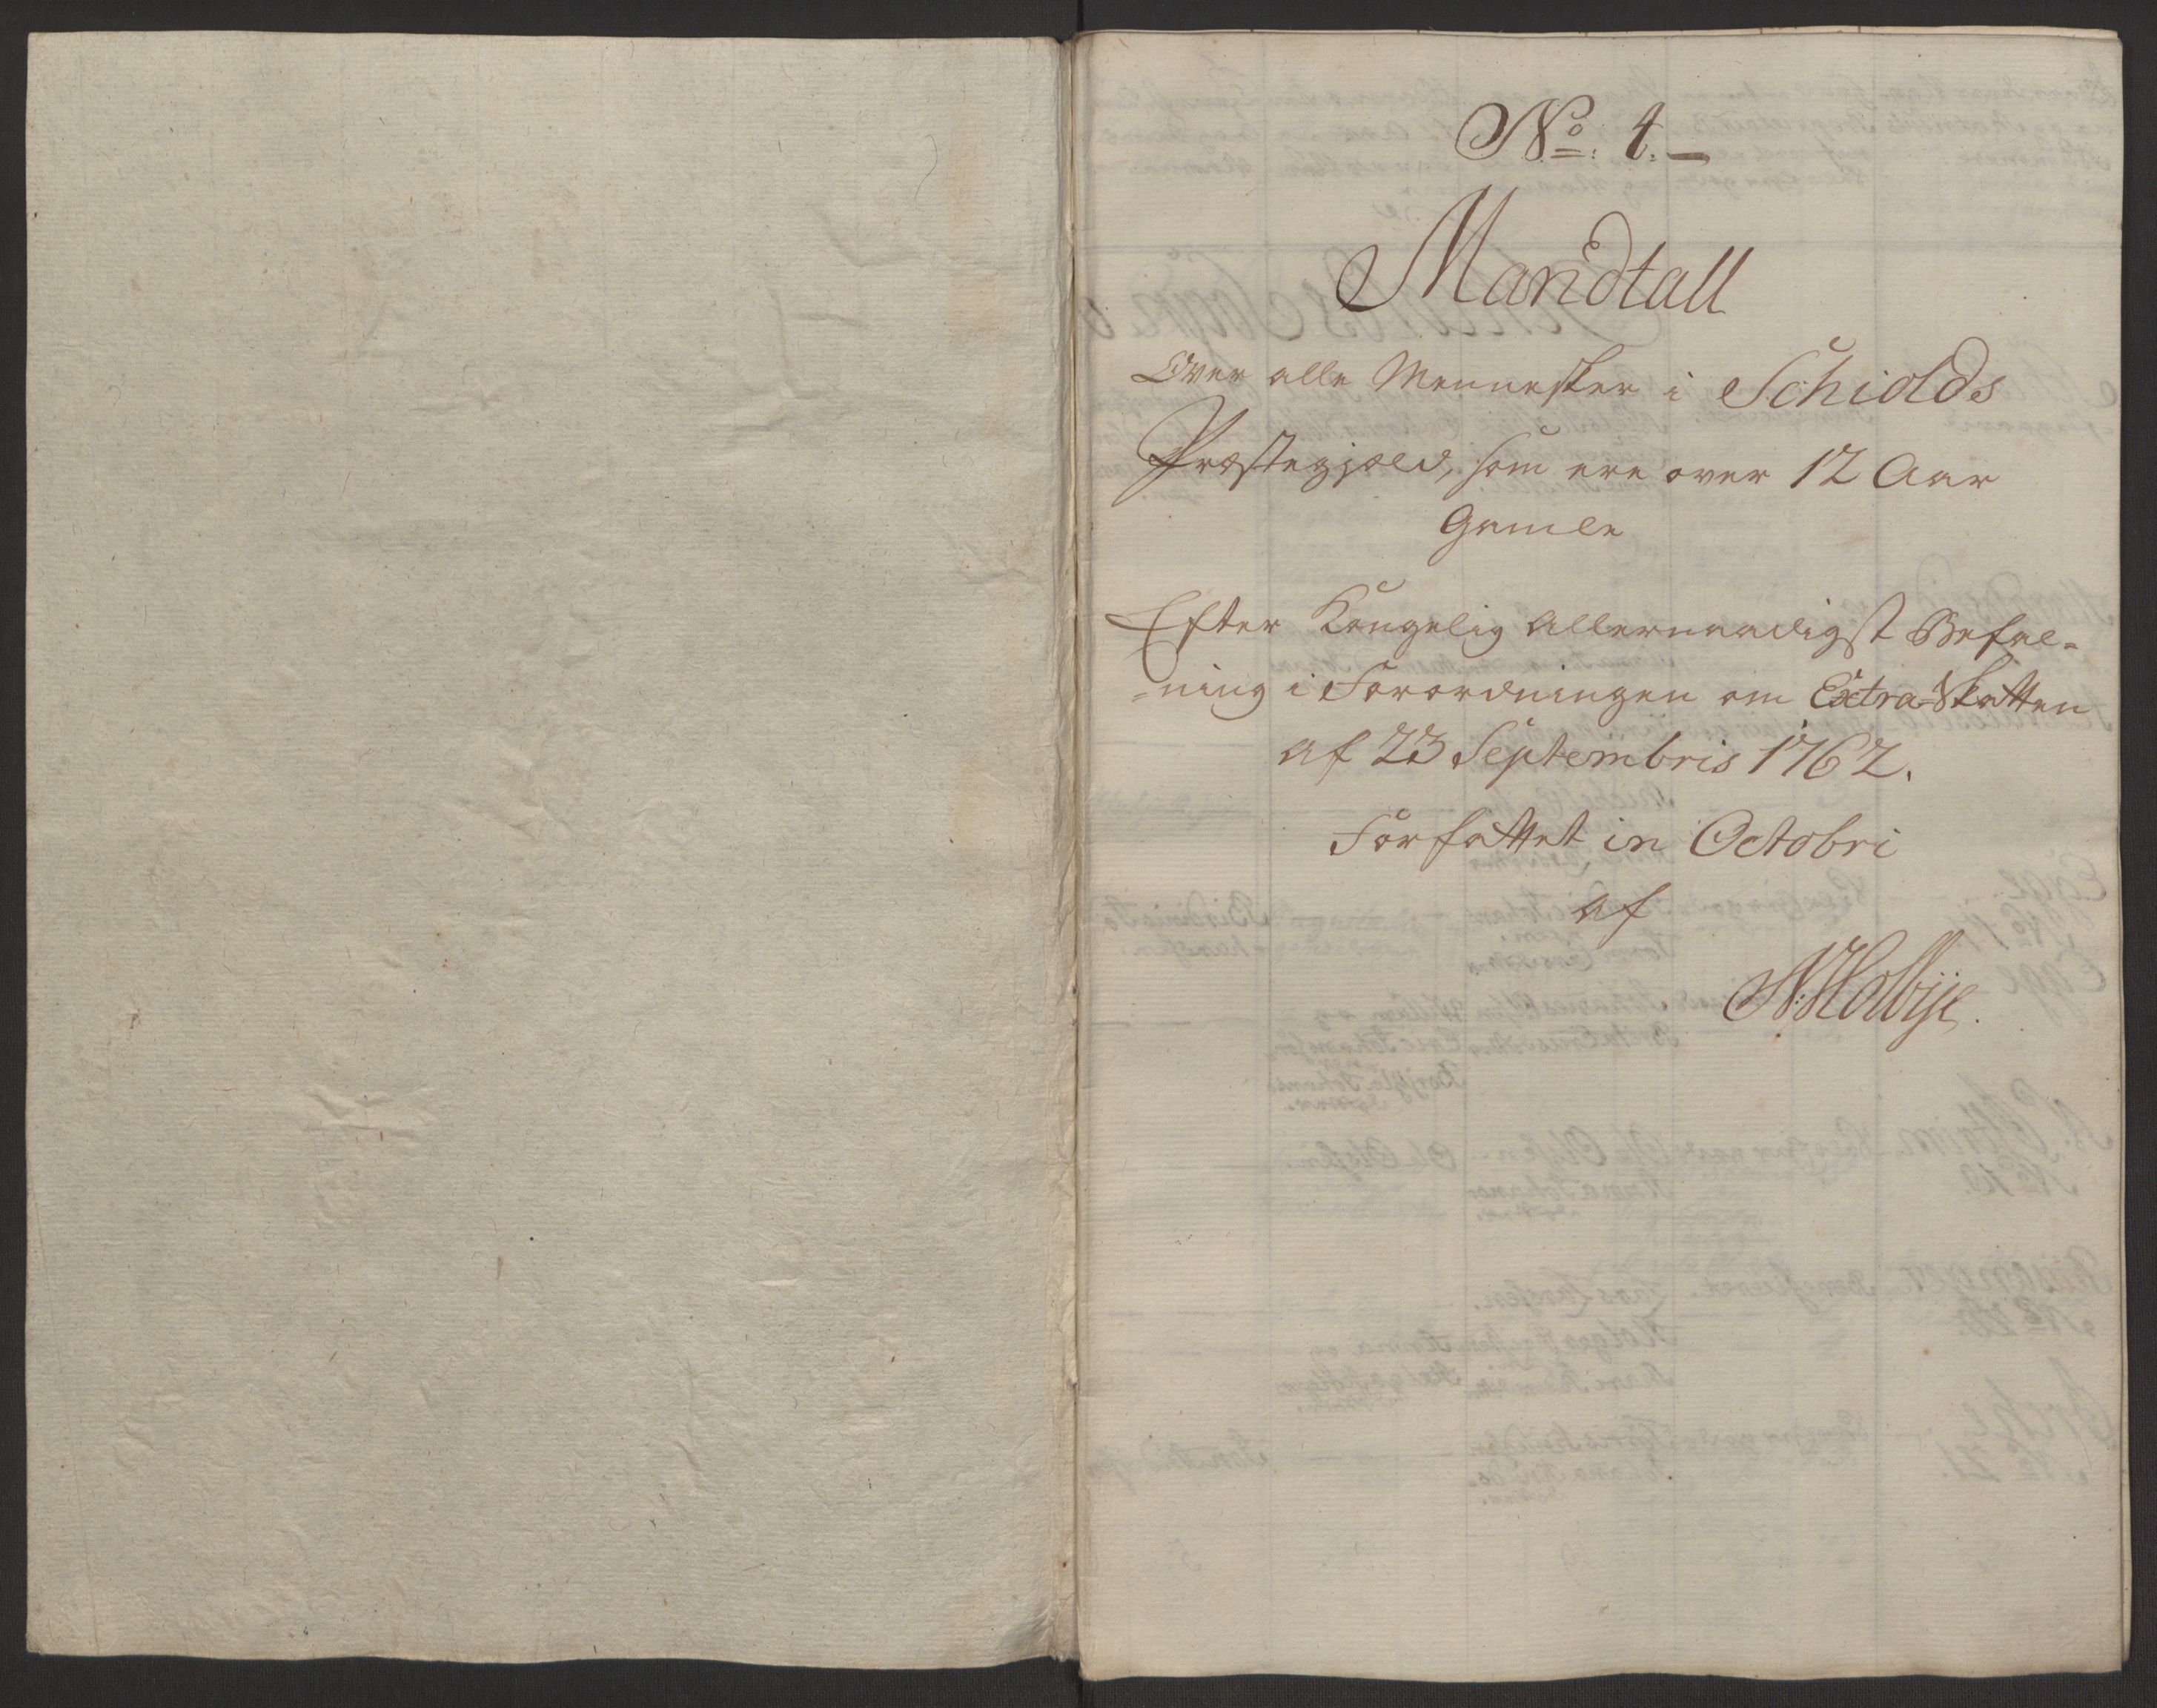 No: 4.
Mandtall
Over alle Mennesker i Schiolds
Præstegjeld, som ere over 12 Aar
Gamle
Efter Kongelig Allernaadigst Befal-
-ning i Forordningen om Extra-Skatten
af 23 Septembris 1762.
Forfattet in Octobri
af
N: Holbye.